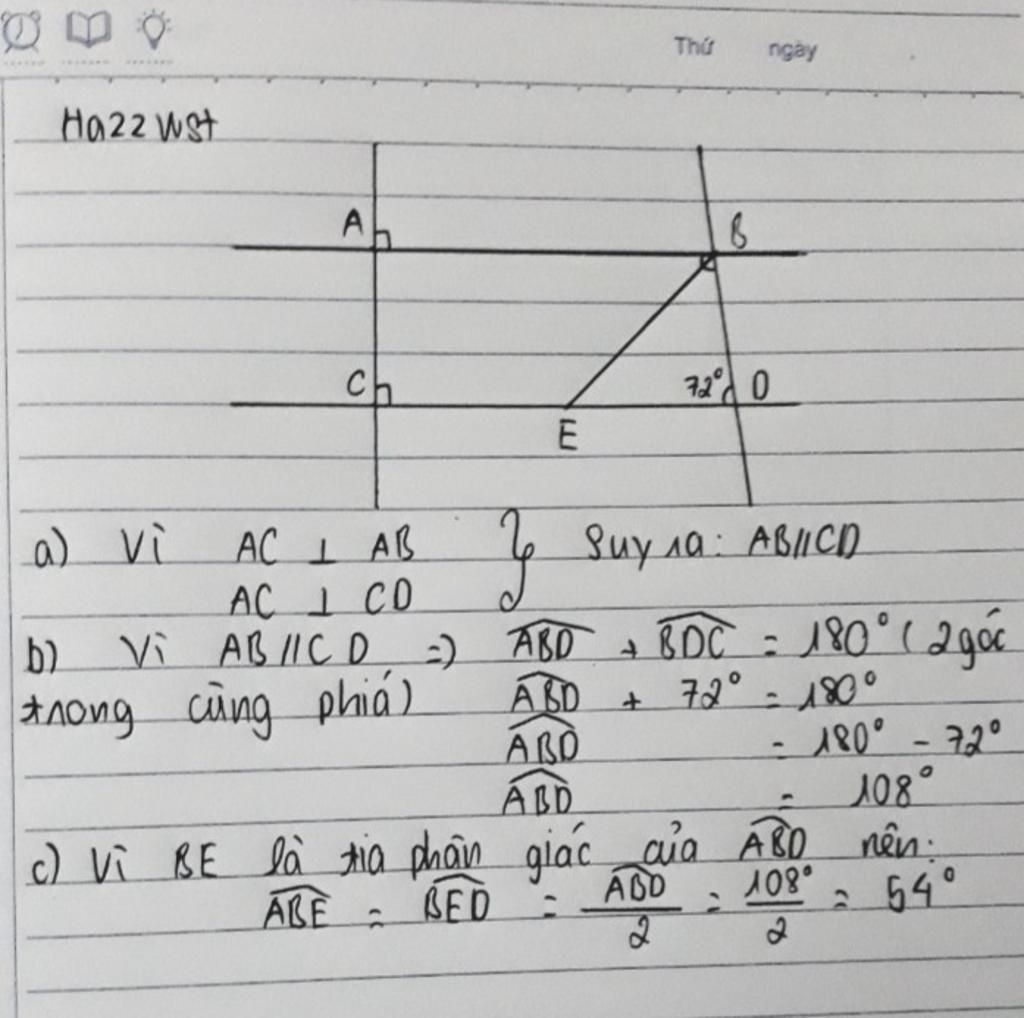 Thứ ngày
Hazz Wst
A B
C 72° D
E
a) Vì AC ⊥ AB } Suy ra: AB//CD
AC ⊥ CD
b) Vì AB//CD => \widehat{ABD} + \widehat{BDC} = 180° (2 góc
trong cùng phiá) \widehat{ABD} + 72° = 180°
\widehat{ABD} = 180° - 72°
\widehat{ABD} = 108°
c) Vì BE là tia phân giác của \widehat{ABD} nên:
\widehat{ABE} = \widehat{BED} = \frac{\widehat{ABD}}{2} = \frac{108°}{2} = 54°